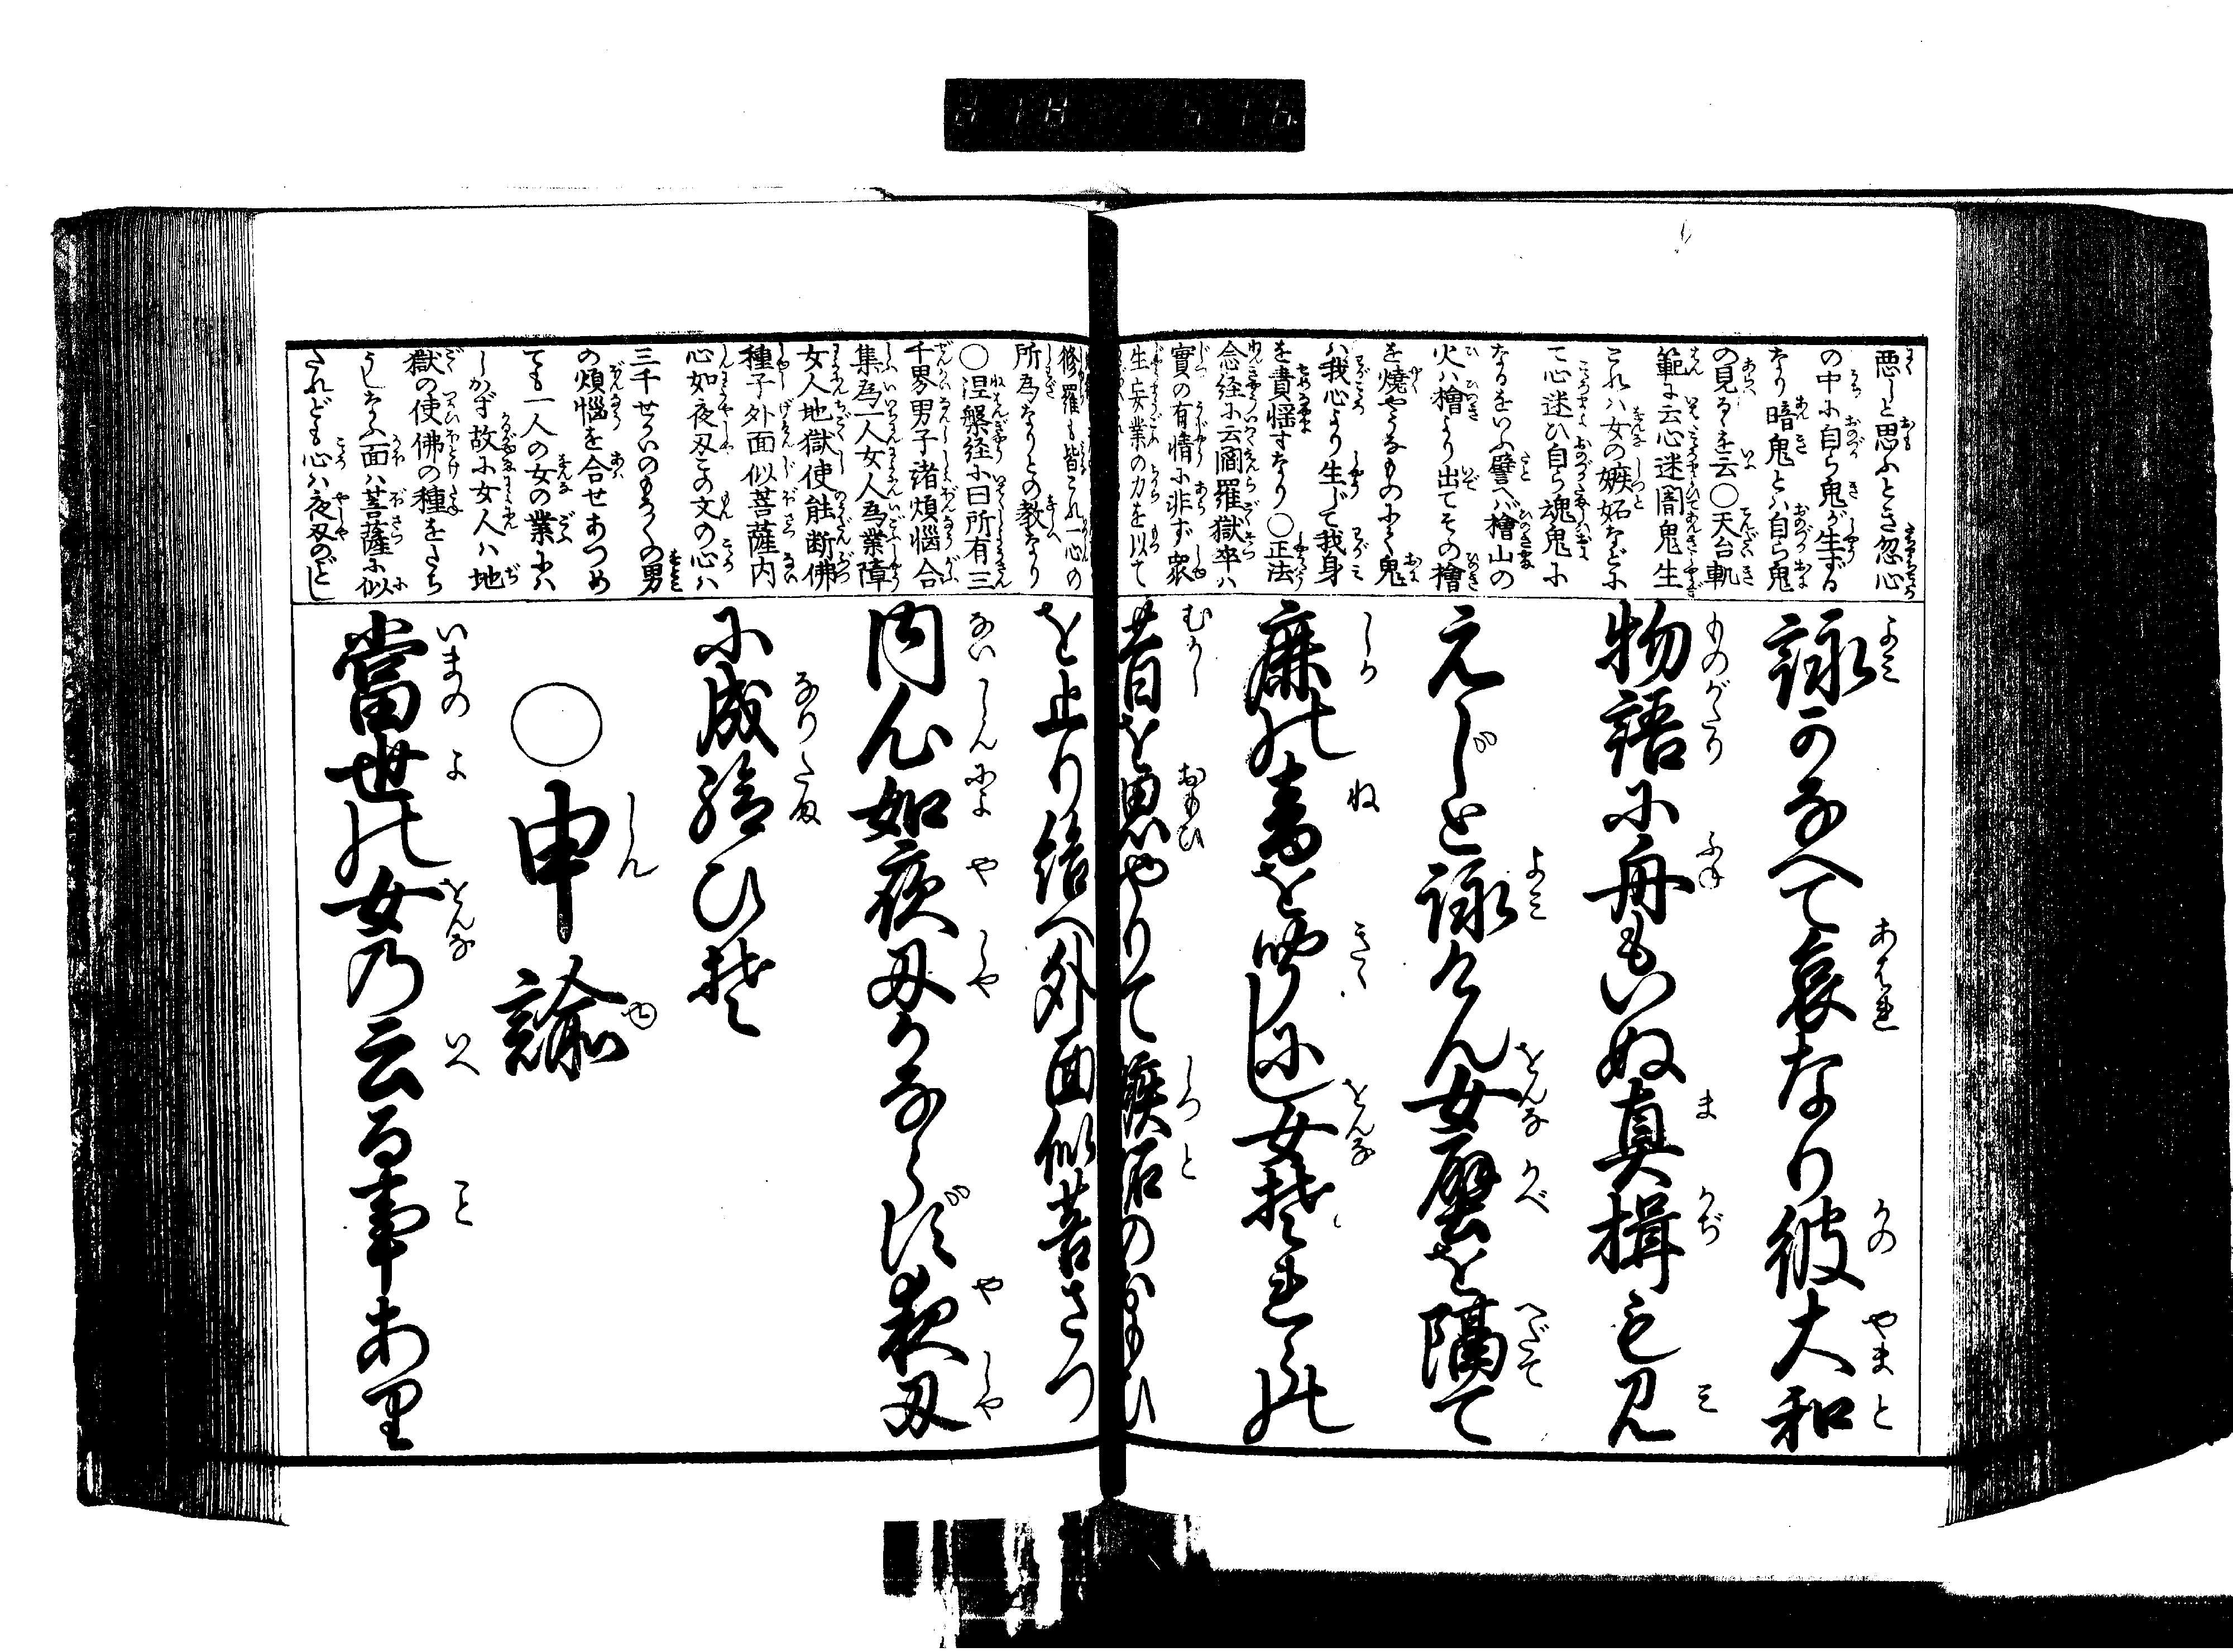 悪しと思ふとき忽心
の中に自ら鬼が生ずる
なり暗鬼とハ自ら鬼
の見るゝを云〇天台軌
範に云心迷闇鬼生
これハ女の嫉妬などに
て心迷ひ自ら魂鬼に
なるをいふ譬へバ檜山の
火ハ檜より出てその檜
を燒やうなものにて鬼
ハ我心より生じて我身
を責惱すなり〇正法
念経に云閻羅獄卒ハ
實の有情に非ず衆
生妄業の力を以て
詠かなへて哀なり彼大和
物語に舟もいぬ真揖も見
えじと詠けん女壁を隔て
麻の音を聞し女
昔を思やりて嫉妬のおもひ
修羅も皆これ一心の
所為なりとの教なり
〇涅槃経に曰所有三
千界男子諸煩惱合
集為一人女人為業障
女人地獄使能断佛
種子外面似菩薩内
心如夜叉この文の心ハ
三千せかいのもろ〱の男
の煩惱を合せあつめ
ても一人の女の業にハ
しかず故に女人ハ地
獄の使佛の種をたち
うしなふ面ハ菩薩に似
たれども心ハ夜叉のごとし
を止り給へ外面似菩さつ
内心如夜叉かならず夜叉
に成給ひそ
〇申諭
當世の女の云る事あり